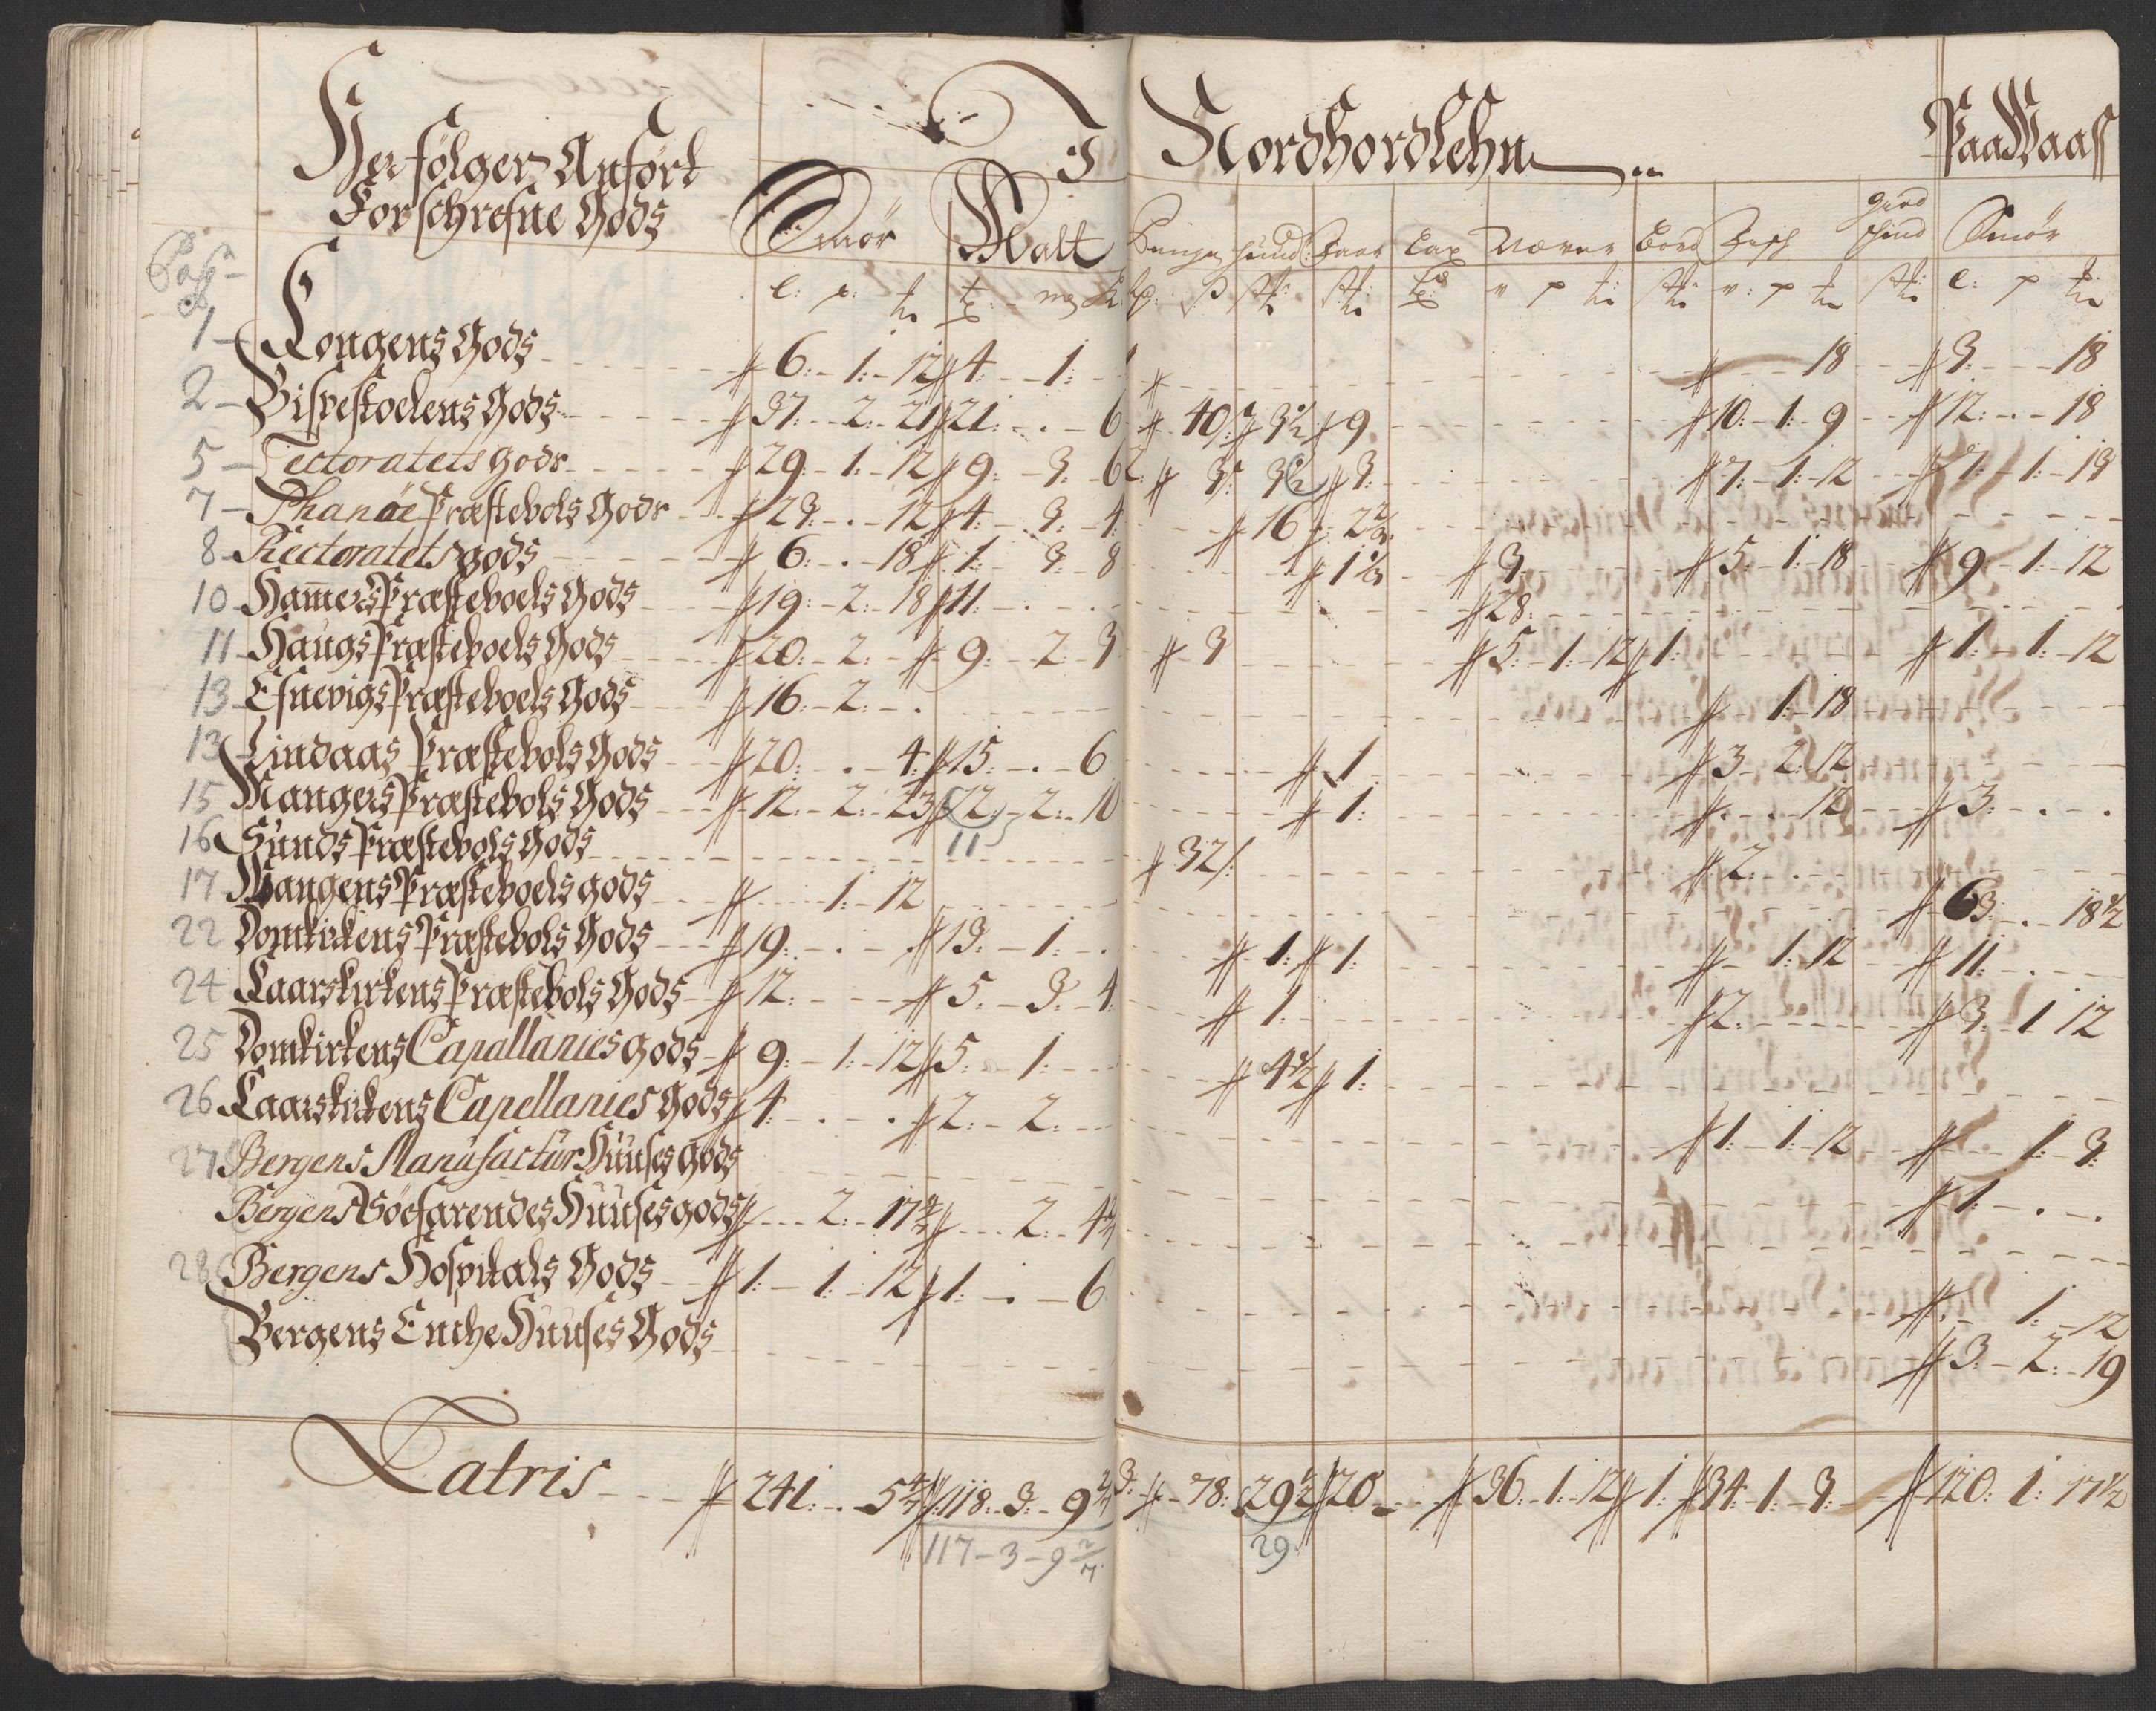 Her følger Anført I Nordhordlehn Paa Waas
Forschrefne Gods
Smör Malt Penge hund: Faar Lax Værur Bord Fisch giedschind Smör
Pag:
1 Kongens Gods 6: 1: 12 4: 1: 18 3: 18
2 Bispestoelens Gods 37: 2: 21 21: . 6 40: 3½ 9 10: 1: 9 12: . 18
5 Lectoratets gods 29: 1: 12 9: 3: 3: 3 7: 1: 12 7: 1: 13
7 Phanöe Præstebols Gods 23: . 12 4: 3: 4 16
8 Rectoratets gods 6: . 18 1: 3: 8 3 5: 1: 18 9: 1: 12
10 Hamers Præsteboels Gods 19: 2: 18 11: . . 28:
11 Haugs Præsteboels Gods 20: 2: 9: 2: 3 3 5: 1: 12 1: 1: 1: 12
13 Efnevigs Præsteboels Gods 16: 2: . 1: 18
13 Lindaas Præstebols Gods 20: . 4: 15: . 6 1 3: 2: 12
15 Mangers Præstebols Gods 12: 2: 23 22: 2: 10 1: 12 3: . .
11
16 Sunds Præstebols Gods 32 2: .
17 Wangens Præsteboels gods 1: 12 63: . 18½
22 Domkirkens Præstebols Gods 19: . . 13: 1: . 1: 1: 1: 12 11: .
24 Kaarskirkens Præstebols Gods 12: 5: 3: 4: 1: 2: 3: 1 12
25 Domkirkens Capallanies gods 9: 1: 12 5: 1: 4½ 1:
26 Kaarskirkens Capellanies Gods 4: . . 2: 2: 1: 1: 12 1: 3:
27 Bergens Manufactur Huuses gods 1: . .
Bergens Söefarendes Huuses gods 2: 17 2: 4
28 Bergens Hospitals Gods 1: 1: 12 1: . 6 1: 12
Bergens Enche Huuses Gods 3: 2: 19
Latris 241: . 5 118: 3: 9 2/7 78: 29½ 20 36: 1: 12 1: 34: 1: 3: 120: 1: 17½
117-3-9 2/7 29